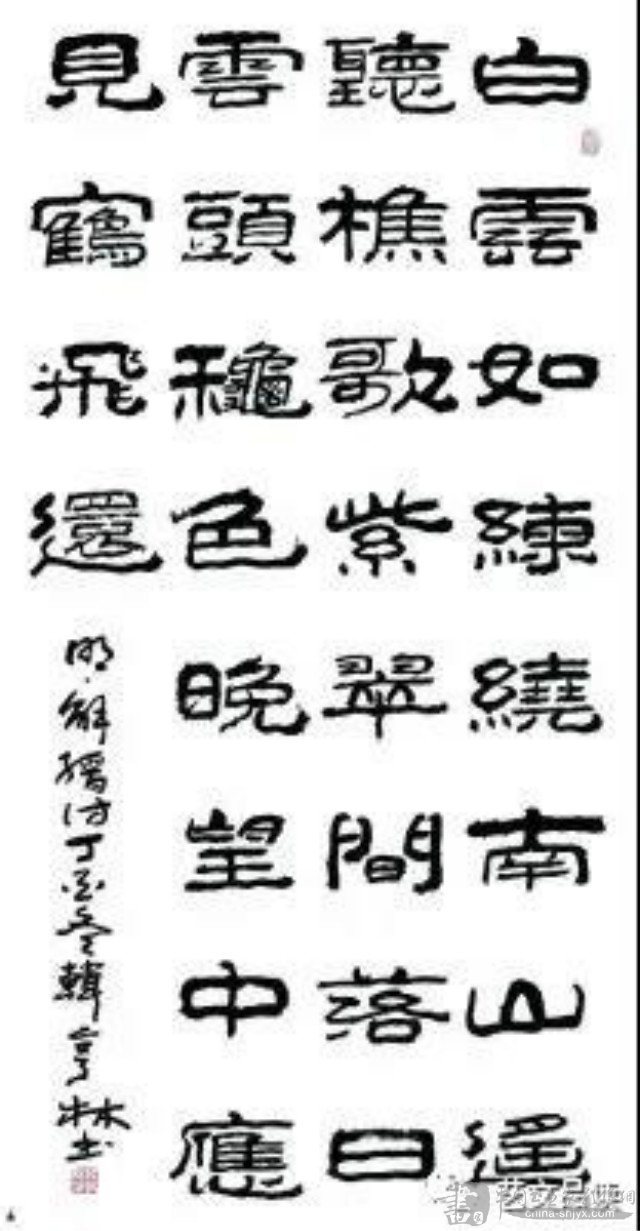 白雲如練繞南山遙
聽樵歌紫翠間落日
雲頭穐色晚望中應
見鶴飛還
明·解縉诗丁酉冬林书
china-shjyx.com